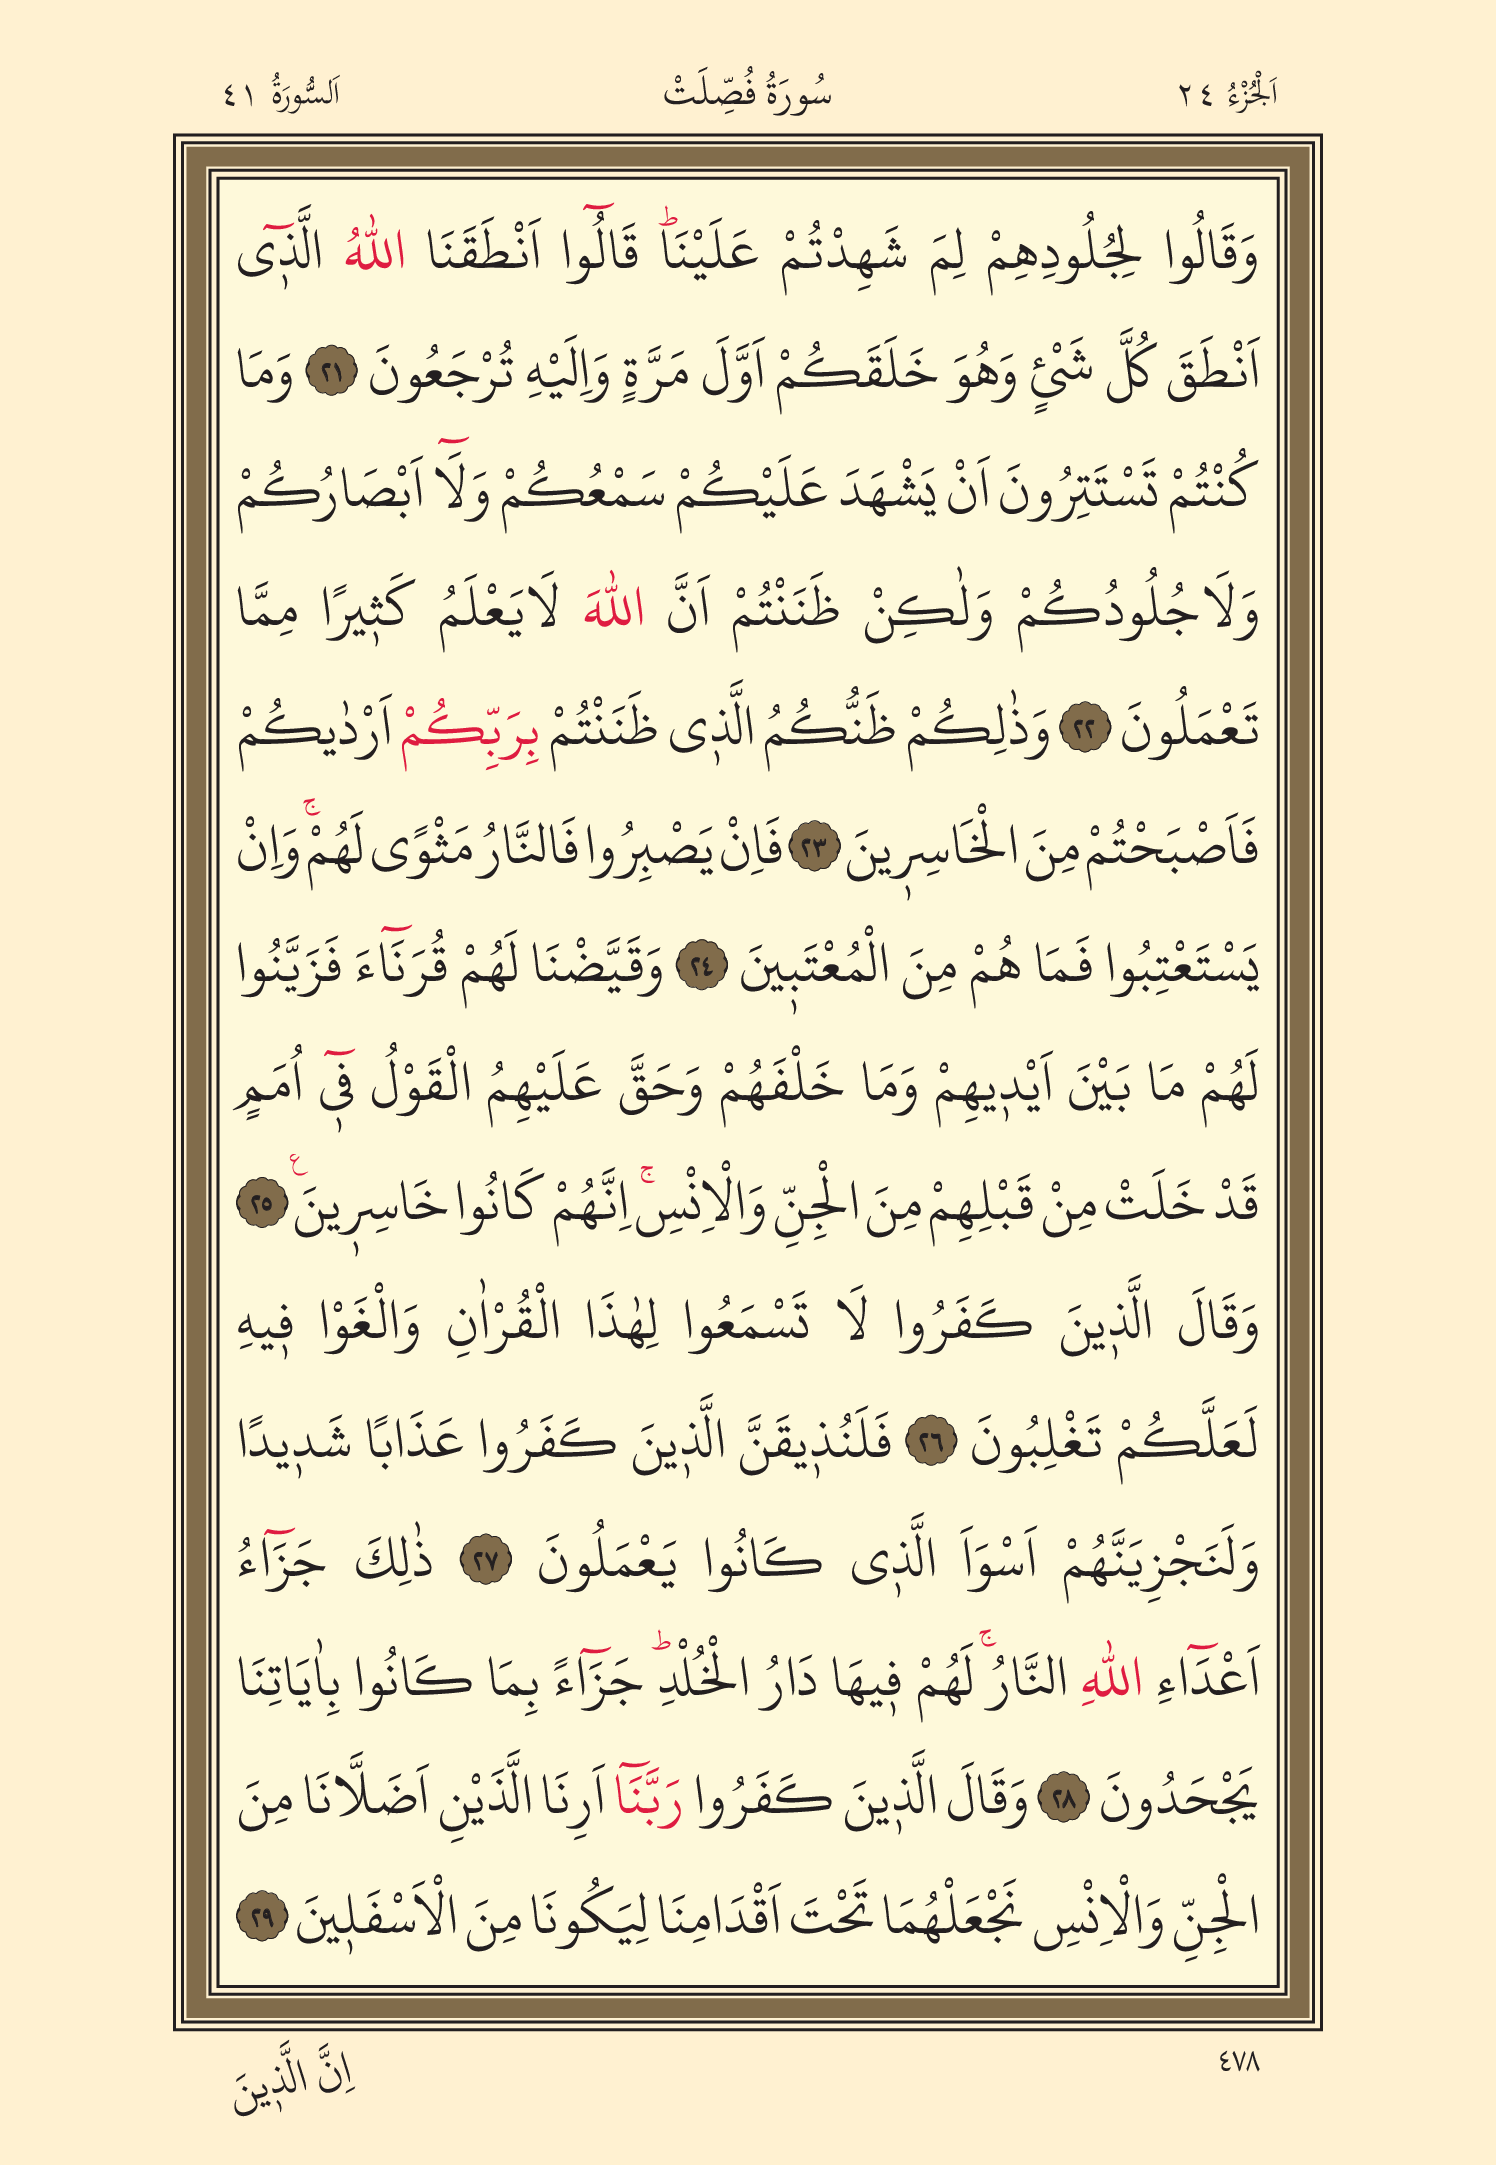 اَلْجُزْءُ ٢٤
سُورَةُ فُصِّلَتْ
اَلسُّورَةُ ٤١
وَقَالُوا لِجُلُودِهِمْ لِمَ شَهِدْتُمْ عَلَيْنَاۜ قَالُٓوا اَنْطَقَنَا اللّٰهُ الَّذ۪ٓى
اَنْطَقَ كُلَّ شَىْءٍ وَهُوَ خَلَقَكُمْ اَوَّلَ مَرَّةٍ وَاِلَيْهِ تُرْجَعُونَ ﴿٢١﴾ وَمَا
كُنْتُمْ تَسْتَتِرُونَ اَنْ يَشْهَدَ عَلَيْكُمْ سَمْعُكُمْ وَلَٓا اَبْصَارُكُمْ
وَلَا جُلُودُكُمْ وَلٰكِنْ ظَنَنْتُمْ اَنَّ اللّٰهَ لَا يَعْلَمُ كَث۪يرًا مِمَّا
تَعْمَلُونَ ﴿٢٢﴾ وَذٰلِكُمْ ظَنُّكُمُ الَّذ۪ى ظَنَنْتُمْ بِرَبِّكُمْ اَرْدٰيكُمْ
فَاَصْبَحْتُمْ مِنَ الْخَاسِر۪ينَ ﴿٢٣﴾ فَاِنْ يَصْبِرُوا فَالنَّارُ مَثْوًى لَهُمْۚ وَاِنْ
يَسْتَعْتِبُوا فَمَا هُمْ مِنَ الْمُعْتَب۪ينَ ﴿٢٤﴾ وَقَيَّضْنَا لَهُمْ قُرَنَٓاءَ فَزَيَّنُوا
لَهُمْ مَا بَيْنَ اَيْد۪يهِمْ وَمَا خَلْفَهُمْ وَحَقَّ عَلَيْهِمُ الْقَوْلُ ف۪ٓى اُمَمٍ
قَدْ خَلَتْ مِنْ قَبْلِهِمْ مِنَ الْجِنِّ وَالْاِنْسِۚ اِنَّهُمْ كَانُوا خَاسِر۪ينَ ع ﴿٢٥﴾
وَقَالَ الَّذ۪ينَ كَفَرُوا لَا تَسْمَعُوا لِهٰذَا الْقُرْاٰنِ وَالْغَوْا ف۪يهِ
لَعَلَّكُمْ تَغْلِبُونَ ﴿٢٦﴾ فَلَنُذ۪يقَنَّ الَّذ۪ينَ كَفَرُوا عَذَابًا شَد۪يدًا
وَلَنَجْزِيَنَّهُمْ اَسْوَاَ الَّذ۪ى كَانُوا يَعْمَلُونَ ﴿٢٧﴾ ذٰلِكَ جَزَٓاءُ
اَعْدَٓاءِ اللّٰهِ النَّارُۚ لَهُمْ ف۪يهَا دَارُ الْخُلْدِۜ جَزَٓاءً بِمَا كَانُوا بِاٰيَاتِنَا
يَجْحَدُونَ ﴿٢٨﴾ وَقَالَ الَّذ۪ينَ كَفَرُوا رَبَّنَٓا اَرِنَا الَّذَيْنِ اَضَلَّانَا مِنَ
الْجِنِّ وَالْاِنْسِ نَجْعَلْهُمَا تَحْتَ اَقْدَامِنَا لِيَكُونَا مِنَ الْاَسْفَل۪ينَ ﴿٢٩﴾
٤٧٨
اِنَّ الَّذ۪ينَ